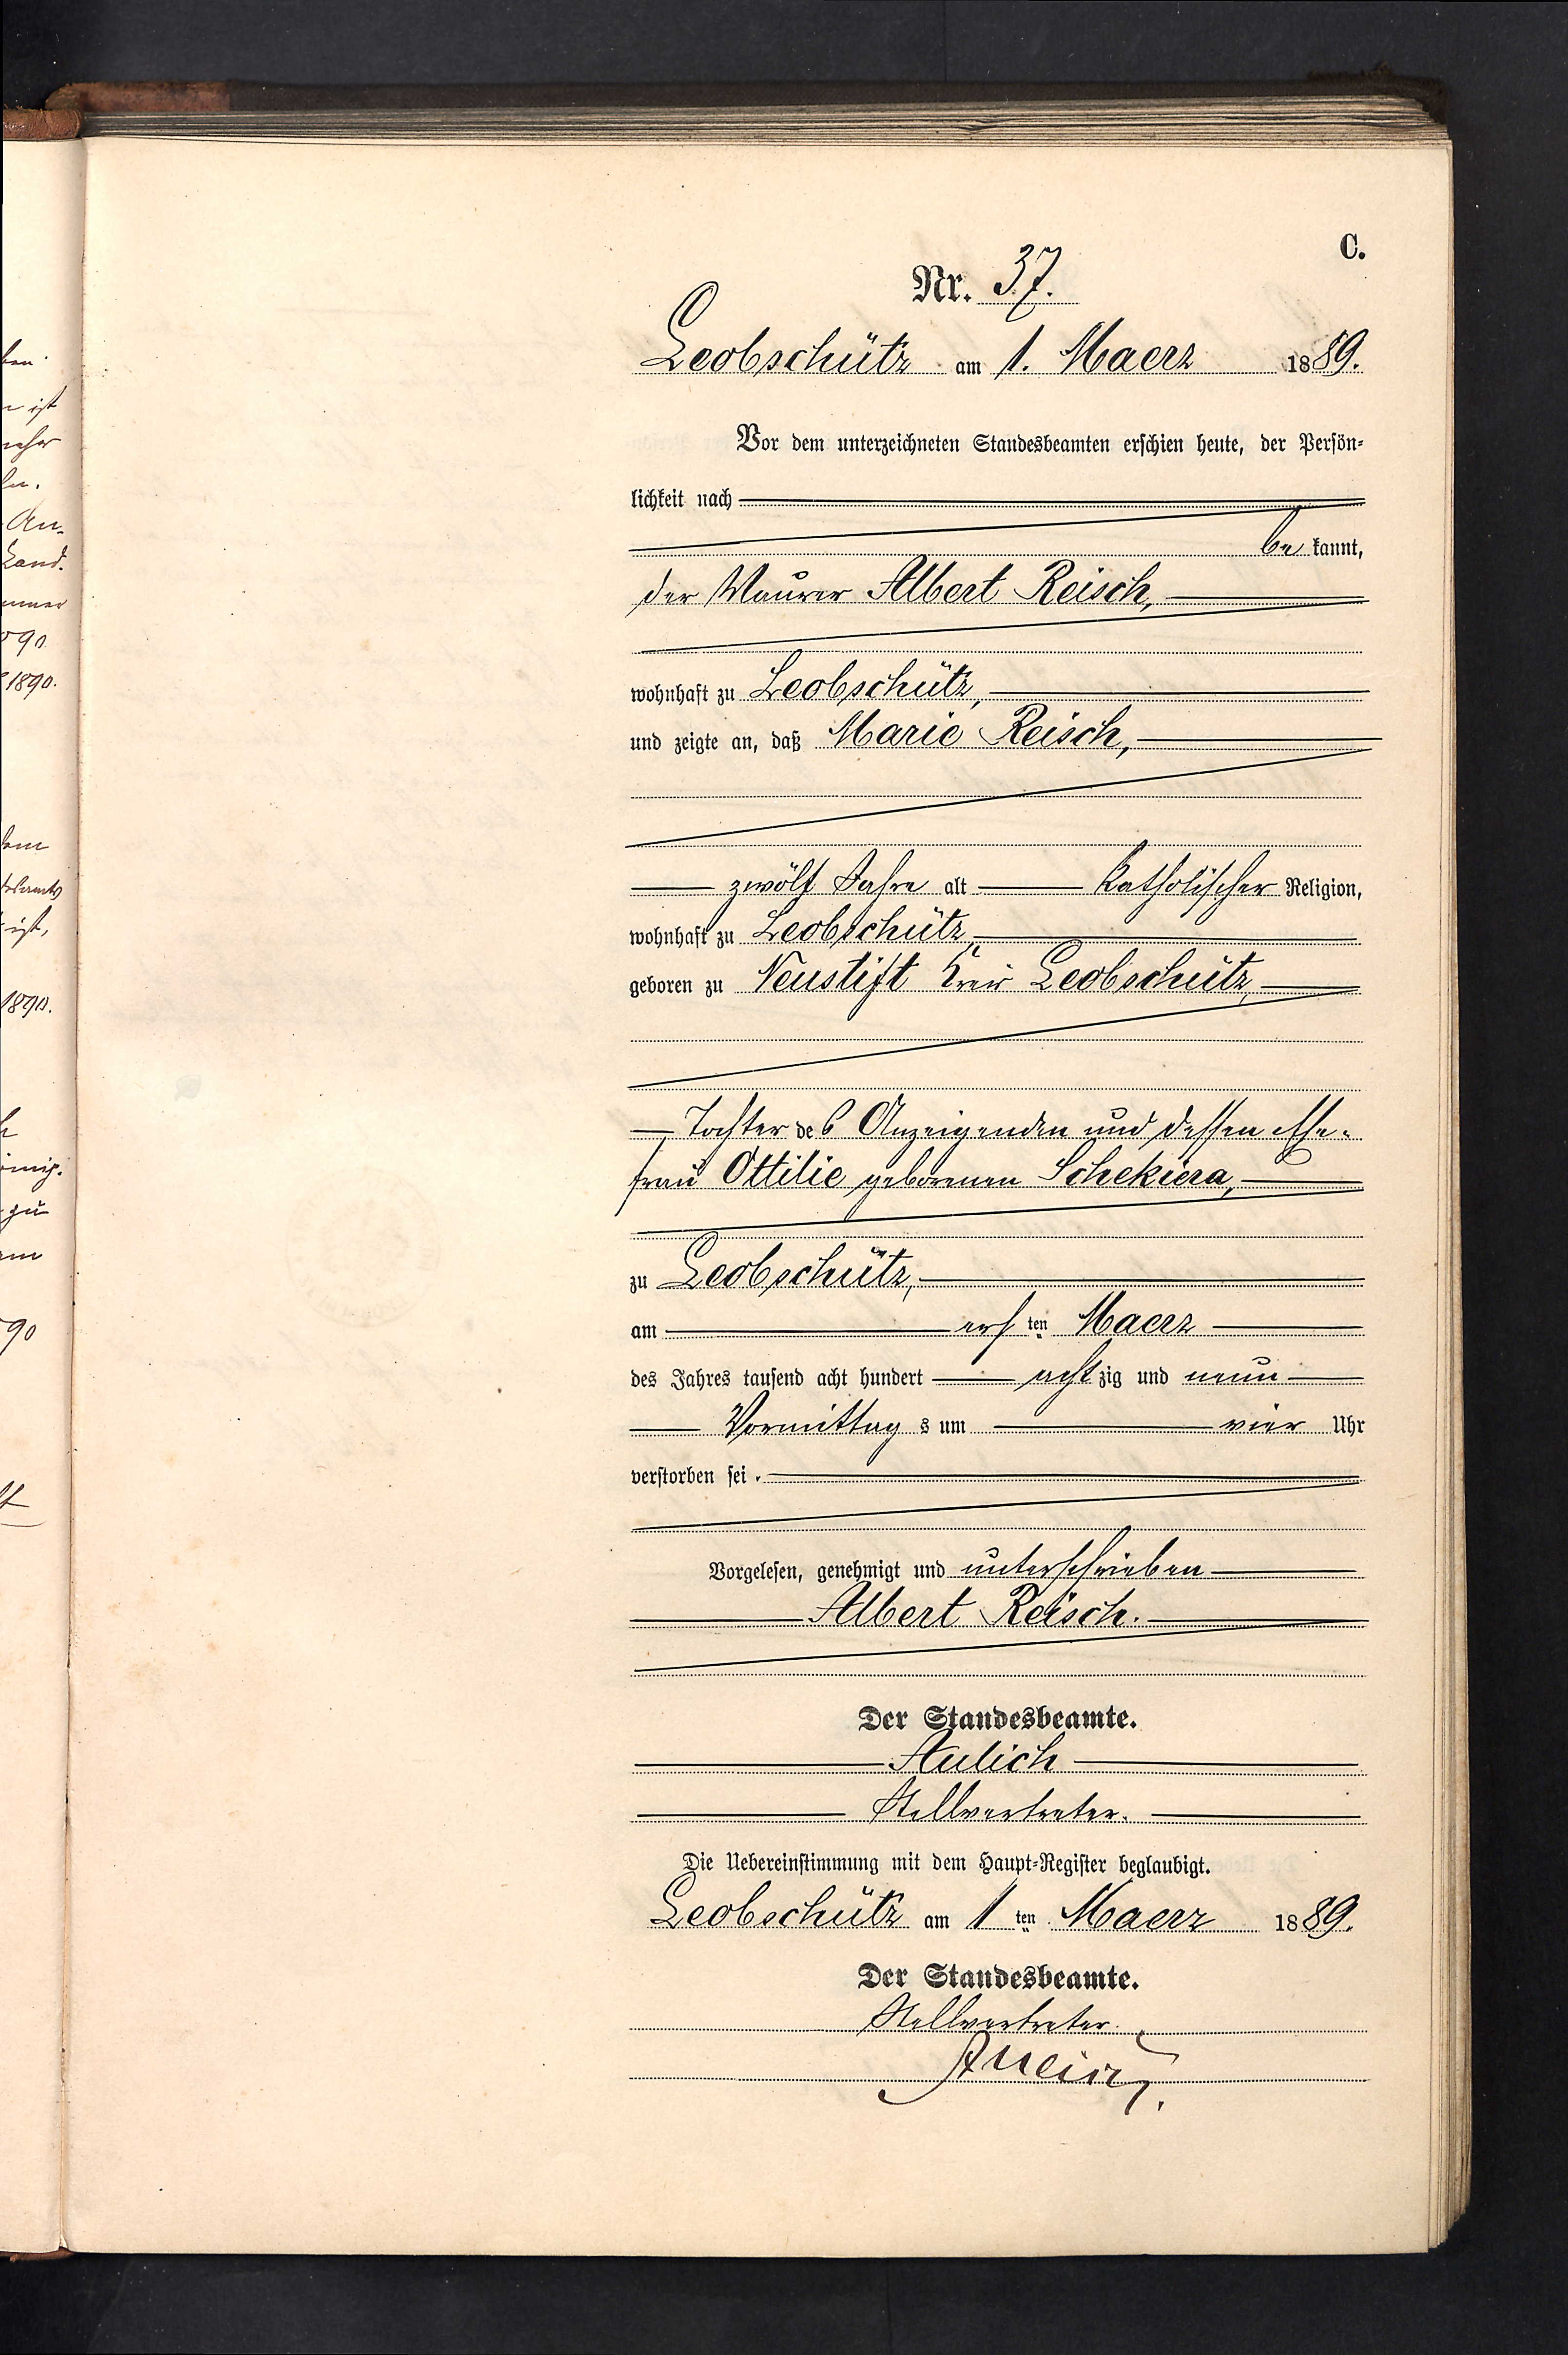 C.
Nr. 37.
Leobschütz am 1. Maerz 1889.
Vor dem unterzeichneten Standesbeamten erschien heute, der Persön-
lichkeit nach
be kannt,
der Maurer Albert Reisch,
wohnhaft zu Leobschütz,
und zeigte an, daß Marie Reisch,
zwölf Jahre alt katholischer Religion,
wohnhaft zu Leobschütz,
geboren zu Neustift Kreis Leobschütz,
Tochter des Anzeigenden und dessen Ehe-
frau Ottilie geborenen Schekiera,
zu Leobschütz,
am ersten Maerz
des Jahres tausend acht hundert achtzig und neun
Vormittags um vier Uhr
verstorben sei.
Vorgelesen, genehmigt und unterschrieben
Albert Reisch.
Der Standesbeamte.
Aulich
Stellvertreter.
Die Uebereinstimmung mit dem Haupt-Register beglaubigt.
Leobschütz am 1ten Maerz 1889.
Der Standesbeamte.
Stellvertreter.
Aulich.
ist
An-
Land.
90
1890.
ist,
1890.
zu
90